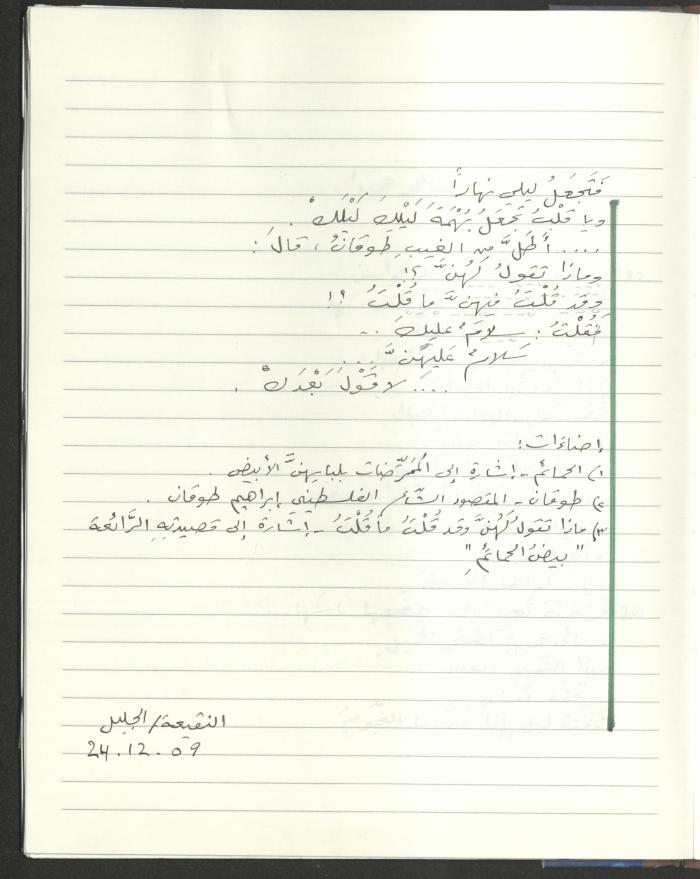 فَتَجعَلُ ليلي نهاراً
ويا قلْبُ تجعَلُ بُهْمَةَ لَيْلِكَ لَيْلَكْ.
.... أطَلَّ من الغيبِ طوقانُ، قالَ:
وماذا تقولُ لَهُنَّ ؟!
وَقد قُلْتُ فيهنَّ ما قُلْتُ ؟!
فَقُلْتُ: سلامٌ عليكَ ..
سَلامٌ عَلَيهُنَّ ...
.... لا قَوْلَ بَعْدَكْ .
إضاءَات:
١) الحمائم - إشارة إلى المُمَرّضات بلباسِهِنَّ الأبيض .
٢) طوقان - المقصود الشّاعر الفلسطيني إبراهيم طوقان .
٣) ماذا تقولُ لَهُنَّ وَقد قُلْتُ ما قُلْتُ - إشارة إلى قصيدتِهِ الرَّائعة
"بيضُ الحمائمِ"
البقيعة/الجليل
24.12.09